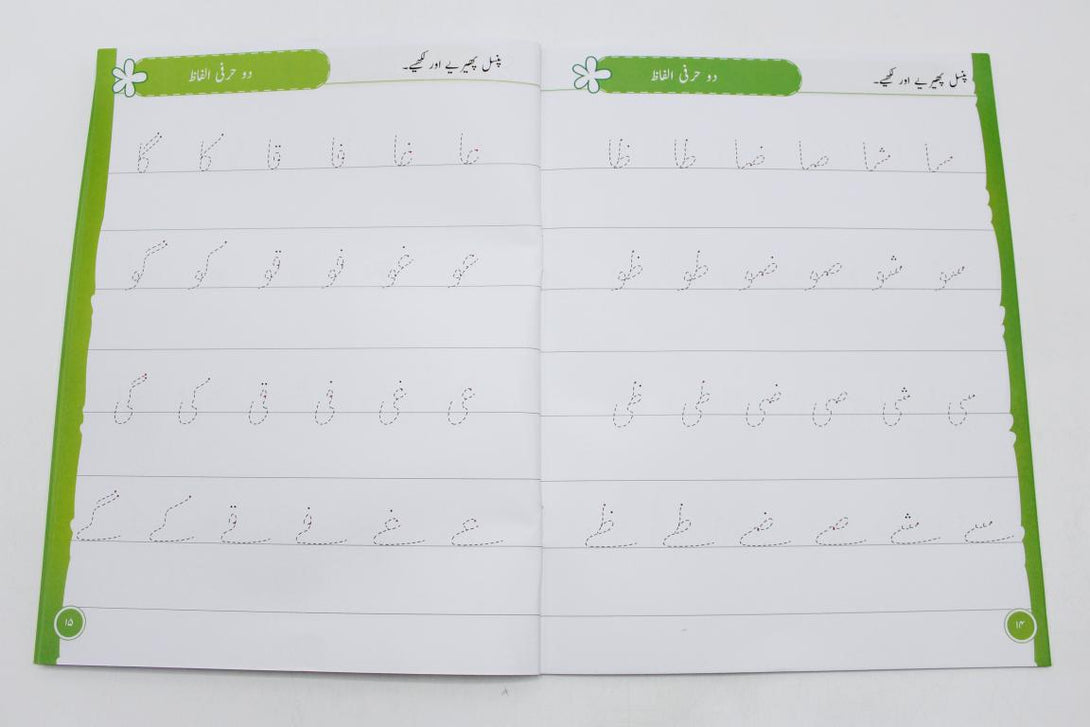 پنسل پھیریے اور لکھیے۔
دو حرفی الفاظ
سا شا صا ضا طا ظا
سو شو صو ضو طو ظو
سی شی صی ضی طی ظی
سے شے صے ضے طے ظے
۱۴
پنسل پھیریے اور لکھیے۔
دو حرفی الفاظ
عا غا فا قا کا گا
عو غو فو قو کو گو
عی غی فی قی کی گی
عے غے فے قے کے گے
۱۵